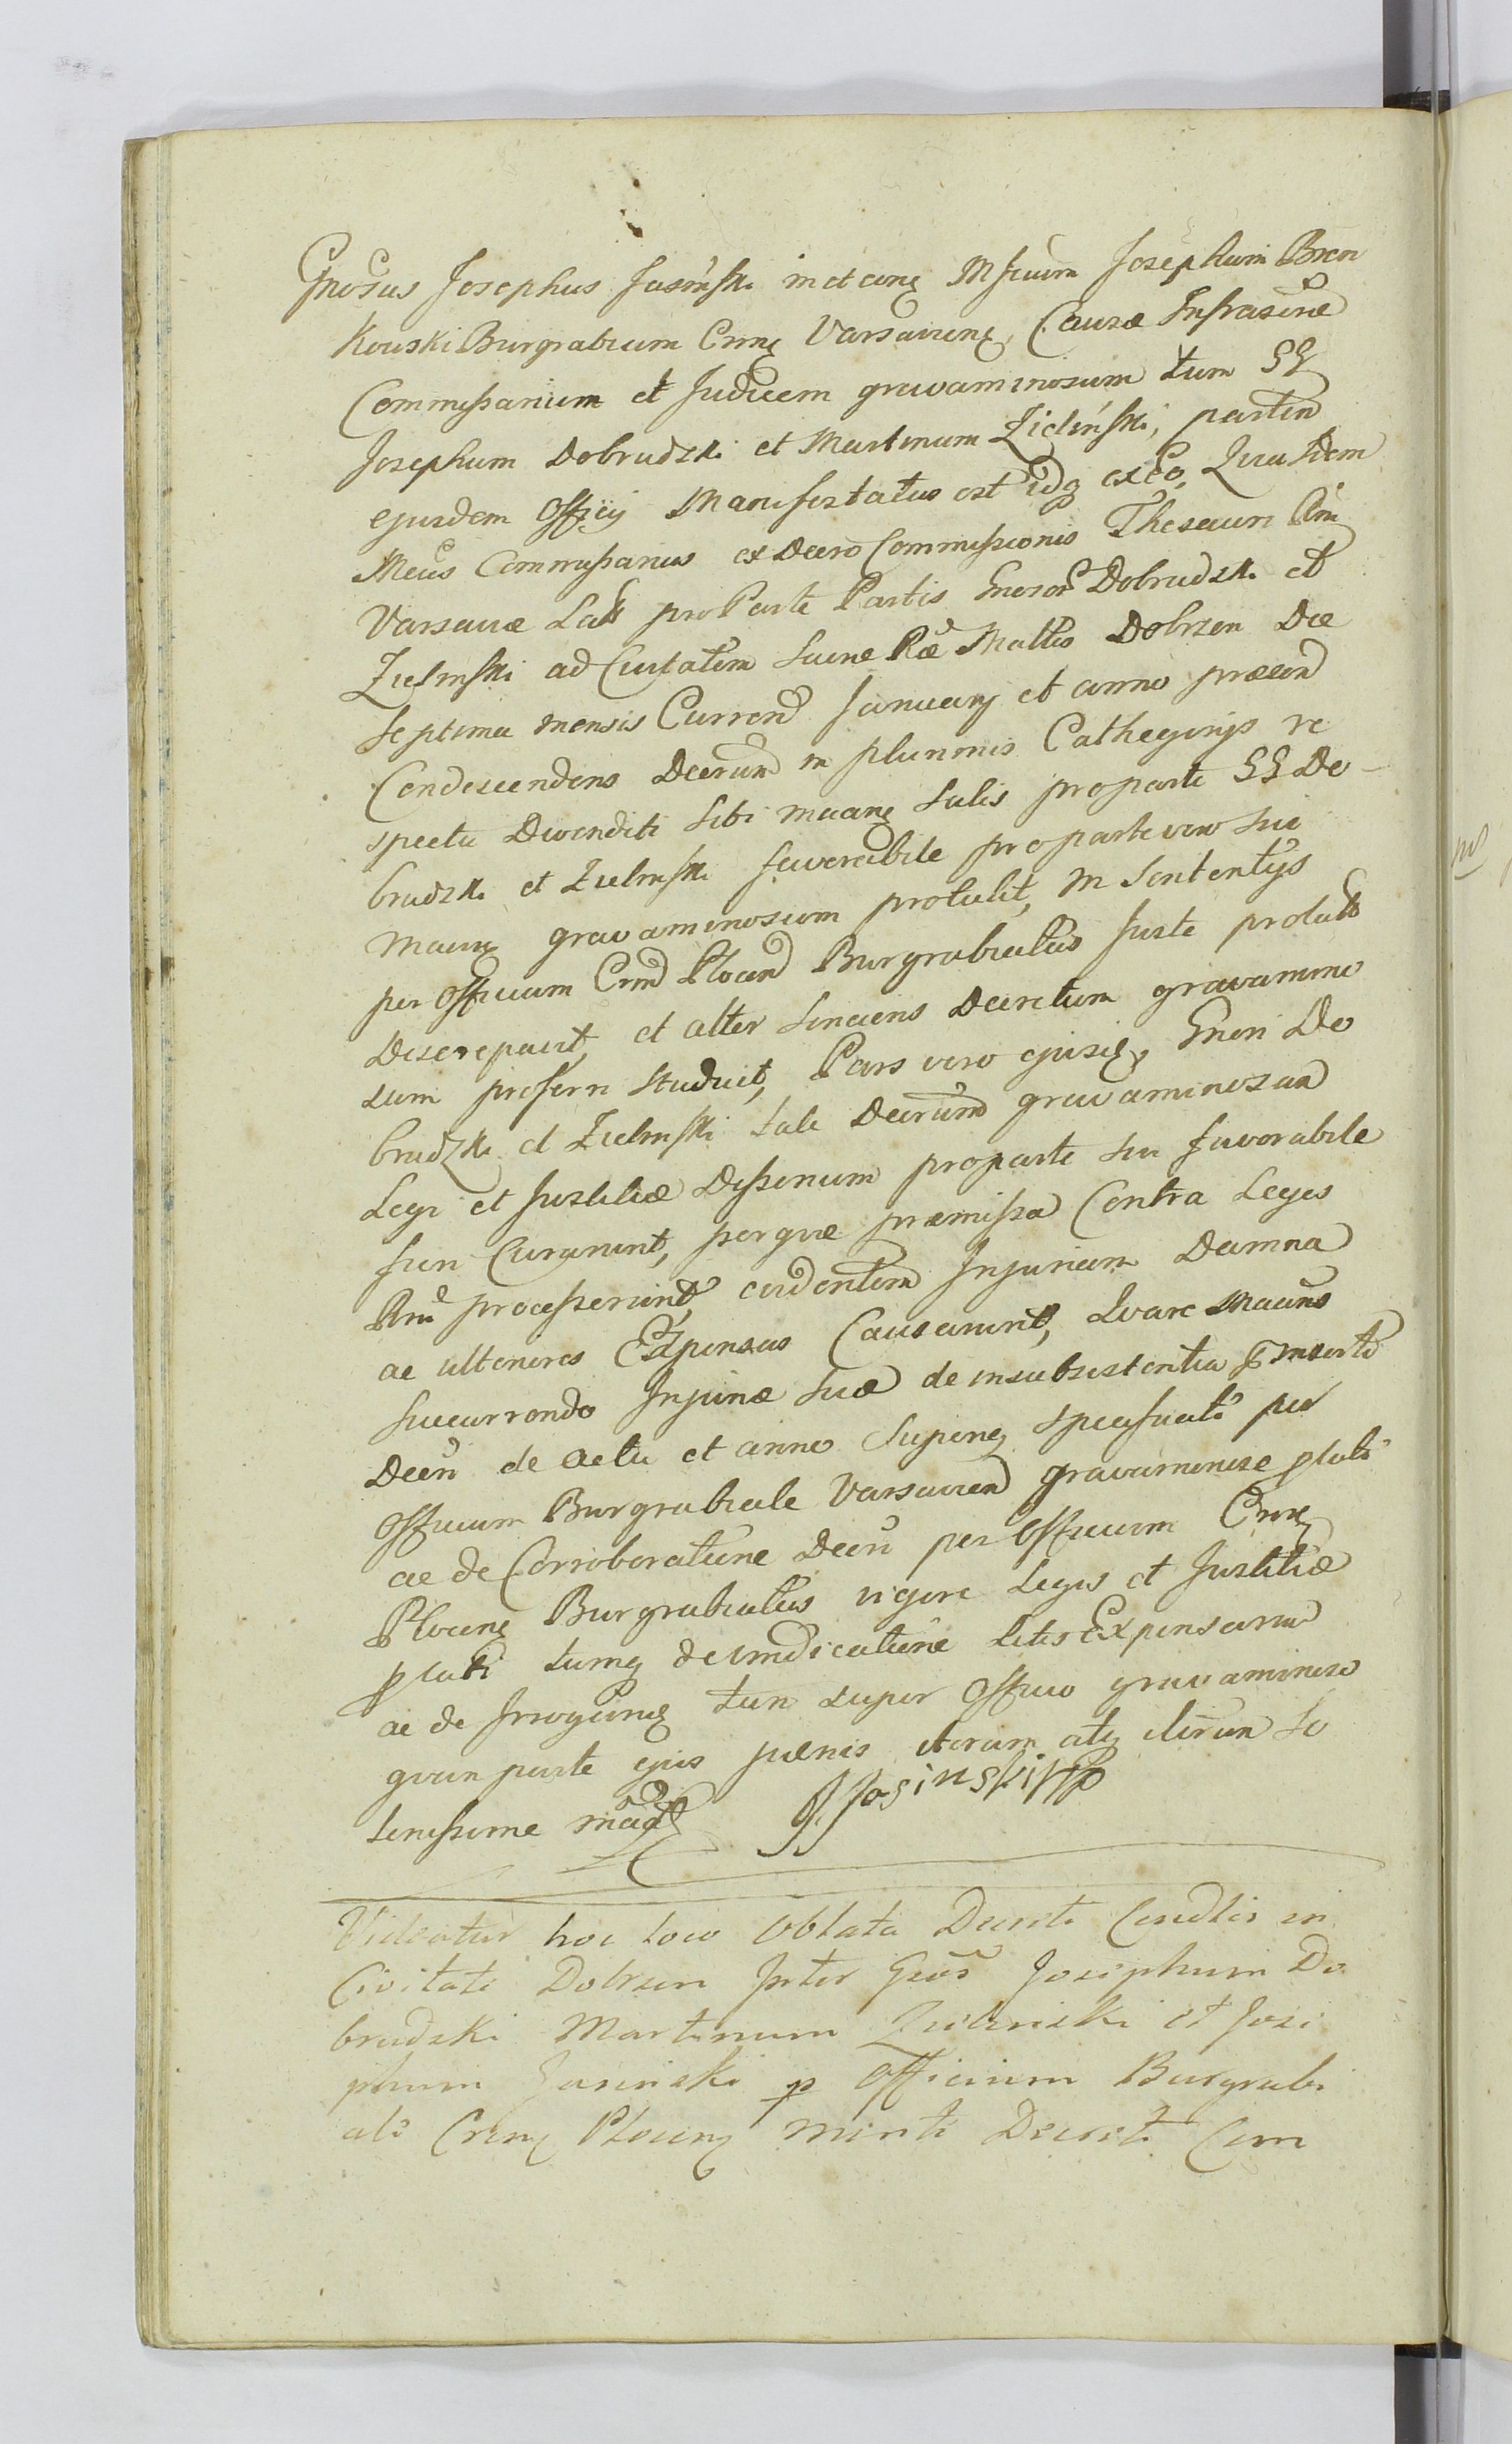 Gnosus Josephus Jasinski in et conq Mficum Josephum Bron
kowski Burgrabium Crnq Varsavienq, Causæ Infrascrae
Commissarium et Judicem gravaminosum tum GG
Josephum Dobrudzki et Martinum Zielinski, partem
ejusdem Officij Manifestatus est idq ex eo, Quia Idem
Mcus Commissarius ex Decro Commissionis Thesauri Rni
Varsaviæ Lat pro Parte Partis Gnosor Dobrudzki et
Zielinski ad Civitatem Sacræ Ræ Mattis Dobrzen Die
Septima mensis Curren Januarij et anno præsen
Condescendens Decrum in plurimis Cathegorijs re
spectu Divenditi sibi maanq Salis pro parte GG Do-
brudzki et Zielinski favorabile pro parte vero sui
manq gravaminosum protulit, in Sententijs
per Officium Crn Plocen Burgrabiatus Juste prolat
Discrepavit, et alter sinciens Decretum gravamino
sum proferri studuit, Pars vero ejusq, Gneri Do
brudzki et Zielinski tale Decrum gravaminosum
Legi et Justitiæ Dissonum pro parte sui favorabile
fieri Curarunt, perquæ præmissa Contra Leges
Rni processerunt evidentem Injuriam Damna
ac ulteriores Expensas Causarunt, Quare Manns
succurrendo Injuriæ suæ de insubsistentia præinserti
Decri de actu et anno superiq specificati per
Officium Burgrabiale Varsavien gravaminose plati
ac de Corroboratione Decri per Officium Crnq
Plocenq Burgrabiatus vigore Legis et Justitiæ
plati tumq de vindicatione Litis Expensarum
ac de Irrogandis tum super Officio gravaminoso
quam parte ejus pænis iterum atq iterum So
lenissime mdt JJasinski mp
Videatur hoc loco Oblata Decreti Condlis in
Civitate Dobrzen Inter Gsos Josephum Do
brudzki Martinum Zielinski et Jose
phum Jasinski p Officium Burgrabi
ale Crenq Plocenq Decreti Cum